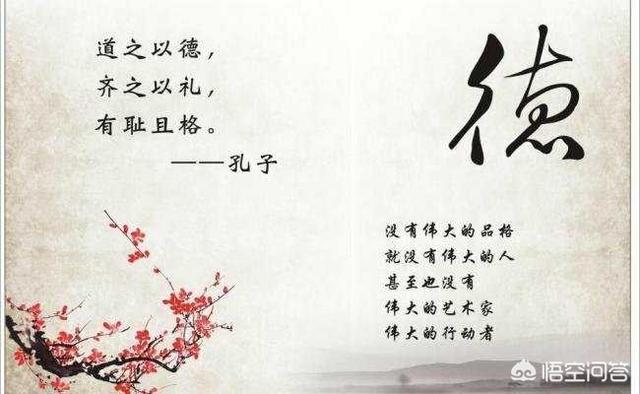 道之以德，
齐之以礼，
有耻且格。
——孔子
德
没有伟大的品格
就没有伟大的人
甚至也没有
伟大的艺术家
伟大的行动者
悟空问答